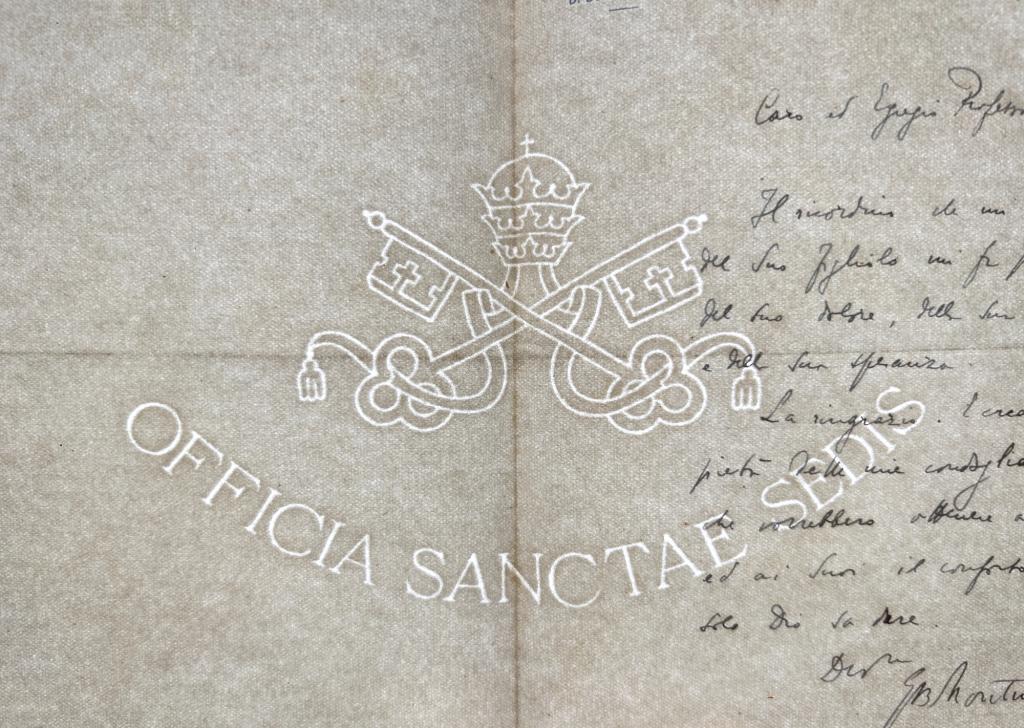 OFFICIA SANCTAE SEDIS
Caro ed Egregio Profess
Il ricordino de un
del Suo figliolo mi fa
del suo dolore, della Sua
e della Sua speranza.
La ringrazio. E
pietà delle mie
che vorrebbero ottenere a
ed ai Suoi il conforto
solo Dio sa dare.
Dev.mo
GBMontin